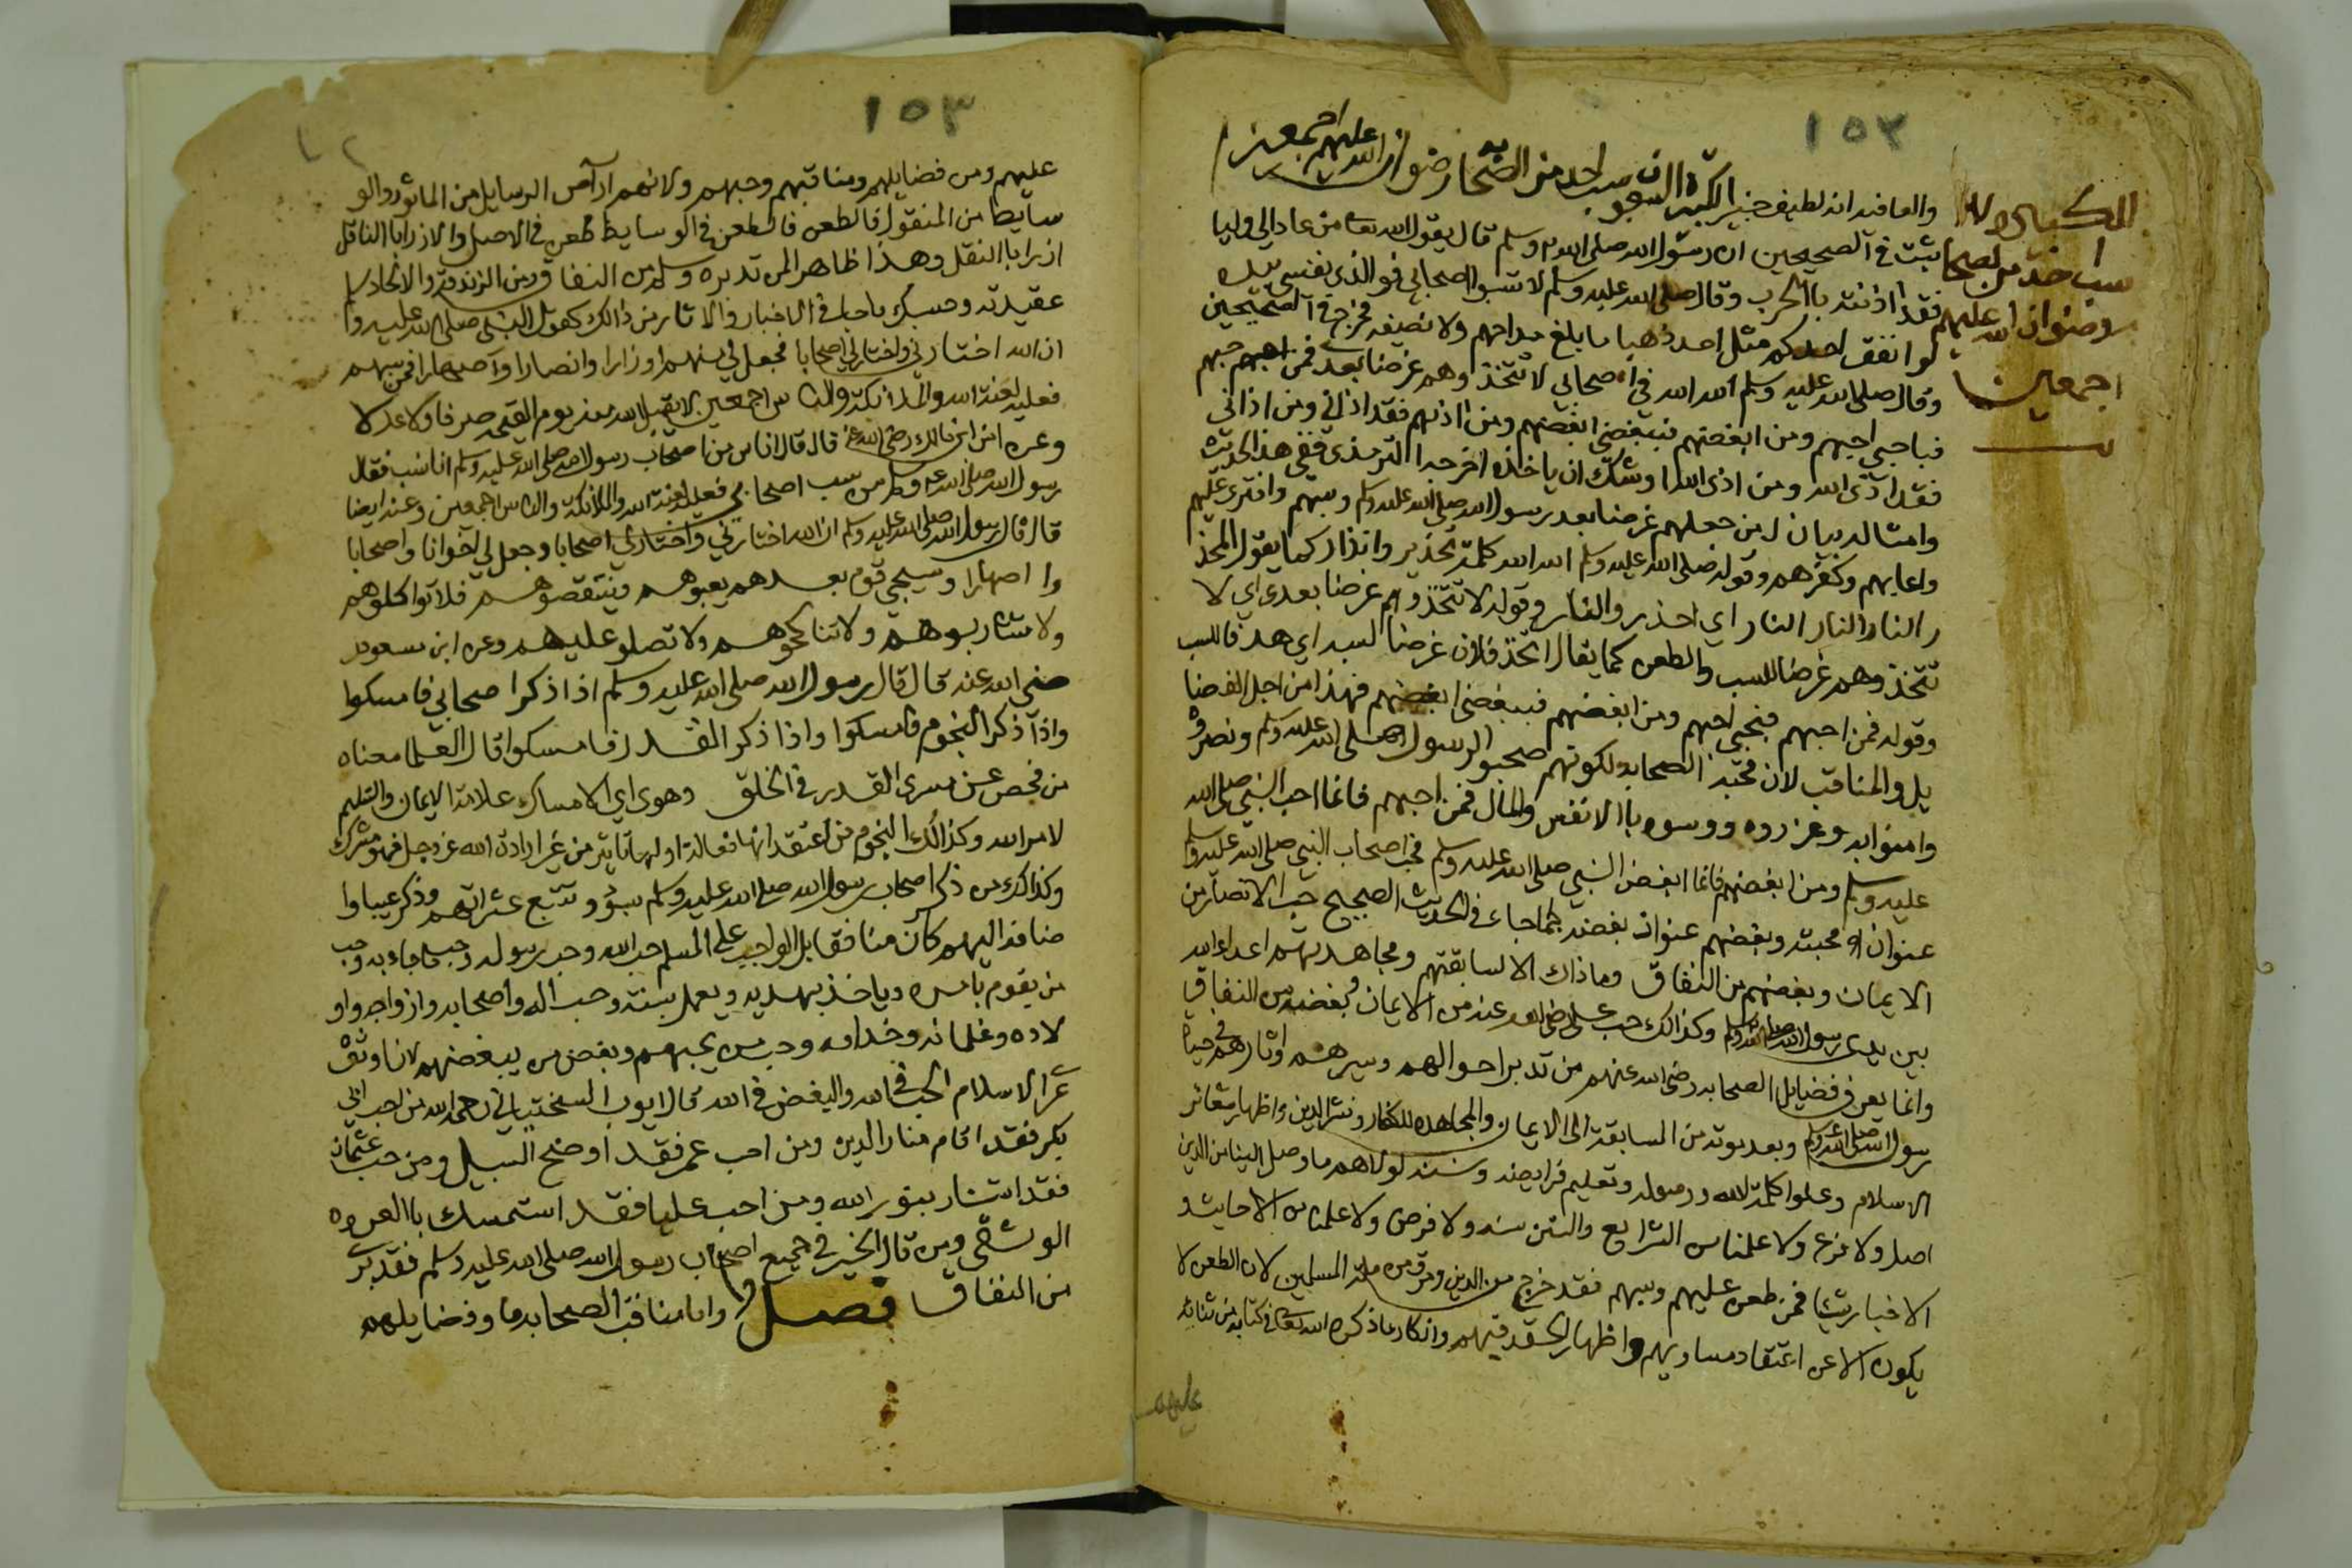 ١٥٣
والعافيه انه لطيف خبير الكبيرة السبعون سب احد من الصحابه رضوان الله عليهم اجمعين
ثبت في الصحيحين ان رسول الله صلى الله وسلم قال يقول الله تعا من عادا لي وليا
فقد اذنته باالحرب وقال صلى الله عليه وسلم لا تسبوا اصحابي فو الذي نفسي بيده
لو انفق احدكم مثل احد ذهبا ما بلغ مد احدهم ولا نصيفه مخرج في الصحيحين
وقال صلى الله عليه وسلم الله الله في اصحابي لا تتخذوهم غرضا بعدي فمن احبهم
فباحبي احبهم ومن ابغضهم فببغضي ابغضهم ومن اذاهم فقد اذاني ومن اذاني
فقد اذى الله ومن اذى الله اوشك ان ياخذه اخرجه الترمذي ففي هذا الحديث
وامثاله بيان لمن جعلهم غرضا بعد رسول الله صلى الله عليه وسلم وسبهم وافترى عليهم
وعابهم وكفرهم وقوله صلى الله عليه وسلم الله الله كلمة تحذير وانذار كما يقول المحذ
ر النار النار النار اي احذر والنار وقوله لا تتخذوهم غرضا بعدي اي لا
تتخذوهم غرضا للسب والطعن كما يقال اتخذ فلان غرضا لسبه اي هدفا للسب
وقوله فمن احبهم فبحبي احبهم ومن ابغضهم فببغضي ابغضهم فهذا من اجل الفضا
يل والمناقب لان محبة الصحابه لكونهم صحبوا الرسول صلى الله عليه وسلم ونصروه
وامنوا به وعزروه وواسوه باالانفس والمال فمن احبهم فانما احب النبي صلى الله
عليه وسلم ومن ابغضهم فانما ابغض النبي صلى الله عليه وسلم فحب اصحاب النبي صلى الله عليه وسلم
عنوان محبته وبغضهم عنوان بغضه كما جاء في الحديث الصحيح حب الانصار من
الايمان وبغضهم من النفاق وما ذاك الا لسابقتهم ومجاهدتهم اعداء الله
بين يدى رسول الله صلى الله عليه وسلم وكذالك حب على رضي الله عنه من الايمان وبغضه من النفاق
وانما يعرف فضايل الصحابه رضي الله عنهم من تدبر احوالهم وسيرهم واثارهم في حياة
رسول الله صلى الله عليه وسلم وبعد موته من المسابقة الى الايمان والمجاهده للكفار ونشر الدين واظهار شعائر
الاسلام وعلوا كلمة الله ورسوله وتعليم فرايضه وسننه لولاهم ما وصل الينا من الدين
اصل ولا فرع ولا علمنا من الشرايع والسنن سنه ولا فرض ولا علمنا من الاحايث و
الاخبار شيئا فمن طعن عليهم وسبهم فقد خرج من الدين ومرق من ملة المسلمين لان الطعن لا
يكون الا عن اعتقاد مساويهم واظهار الحقد فيهم وانكار ما ذكره الله تعا في كتابه من ثنائه
عليهم
سب احد من الصحا
رضوان الله عليهم
اجمعين
١٥٣
عليهم ومن فضايلهم ومناقبهم وحبهم ولانهم ارآض الرسايل من الماثور والو
سايط من المنقول فالطعن فالطعن في الوسايط طعن في الاصل والازرا باالناقل
ازرا باالنقل وهذا ظاهر لمن تدبره وسلم من النفاق ومن الزندقة والالحاد
عقيدته وحسبك ما جا في الاخبار والاثار من ذالك كقول النبي صلى الله عليه وا
ان الله اختارني واختار لي اصحابا فجعل لي منهم اوزارا وانصارا واصهارا فمن سبهم
فعليه لعنة الله والملائكة والناس اجمعين لا يقبل الله منه يوم القيمه صرفا ولا عدلا
وعن انس ابن مالك رضي الله عنه قال قال اناس من اصحاب رسول الله صلى الله عليه وسلم انا نسب فقال
رسول الله صلى الله عليه وسلم من سب اصحابي فعليه لعنة الله والملائكة والناس اجمعين وعنه ايضا
قال قال رسول الله صلى الله عليه وسلم ان الله اختارني واختار لي اصحابا وجعل لي اخوانا واصحابا
وا اصهارا وسيجي قوم بعدهم يعيبوهم وينتقصوهم فلا تواكلوهم
ولا تشاربوهم ولا تناكحوهم ولا تصلو عليهم وعن ابن مسعود
ضي الله عنه قال قال رسول الله صلى الله عليه وسلم اذا ذكر اصحابي فامسكوا
واذا ذكر النجوم فامسكوا واذا ذكر القدر فامسكوا قال العلما معناه
من فحص عن سرى القدر في الخلق وهوى اي الامساك علامة الايمان والتسليم
لامر الله وكذالك النجوم من اعتقد انها فعالة او لها تاثير من غير ارادة الله عز وجل فهو مشرك
وكذالك من ذكر اصحاب رسول الله صلى الله عليه وسلم بسوء وتتبع عثراتهم وذكر عيبا وا
ضافه اليهم كان منافقا بل الواجب على المسلم حب الله وحب رسوله وحب ما جاء به وحب
من يقوم بامره وياخذ بهديه ويعمل بسنته وحب اله واصحابه وازواجه واو
لاده وغلمانه وخدامه وحب من يحبهم وبغض من يبغضهم لان اوثق
عرا الاسلام الحب في الله والبغض في الله قال ايوب السختياني رحمه الله من احب ابي
بكر فقد اقام منار الدين ومن احب عمر فقد اوضح السبيل ومن حب عثمان
فقد استنار بنور الله ومن احب عليا فقد استمسك باالعروه
الوثقى ومن قال الخير في جميع اصحاب رسول الله صلى الله عليه وسلم فقد برئ
من النفاق فصل واما مناقب الصحابه رضا وفضايلهم